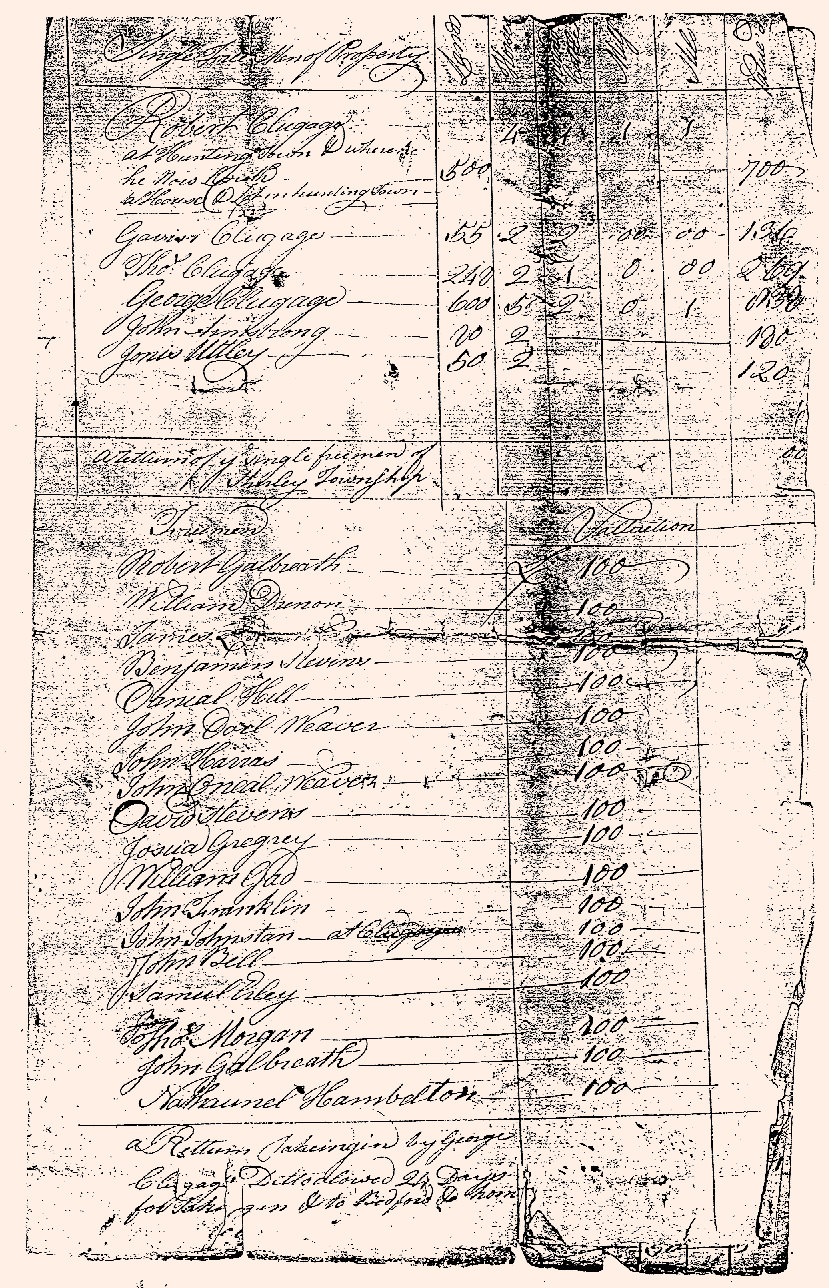 Single Free Men of Property
Robert Clugage 4 4 1 1
at Hunting Town & where
he Now 500 700
a House in hunting Town
Gavin Clugage 55 2 2 00 00 136
Thos Clugage 240 2 1 0 00
George Clugage 600 5 2 0 1
John Armstrong 20 2
Jonis Utley 50 2 120
a Retturn of ye Single freemen of
Shirley Township
Freemen Valluation
Robert Galbreath 100
William Drenon 100
James 100
Benjamen Stevens 100
Danial Hill 100
John Doel Weaver 100
John Harras 100
John Oneal Weaver 100
David Stevens 100
Josua Gregrey 100
William Gad 100
John Franklin 100
John Johnstan at 100
John Bell 100
Samuel Erley 100
Thos Morgan 100
John Galbreath 100
Nathaunel Hambelton 100
a Retturn takeingin by George
Clugage Ditto alowed 24 Days
for Take gin & to Bedford & hom